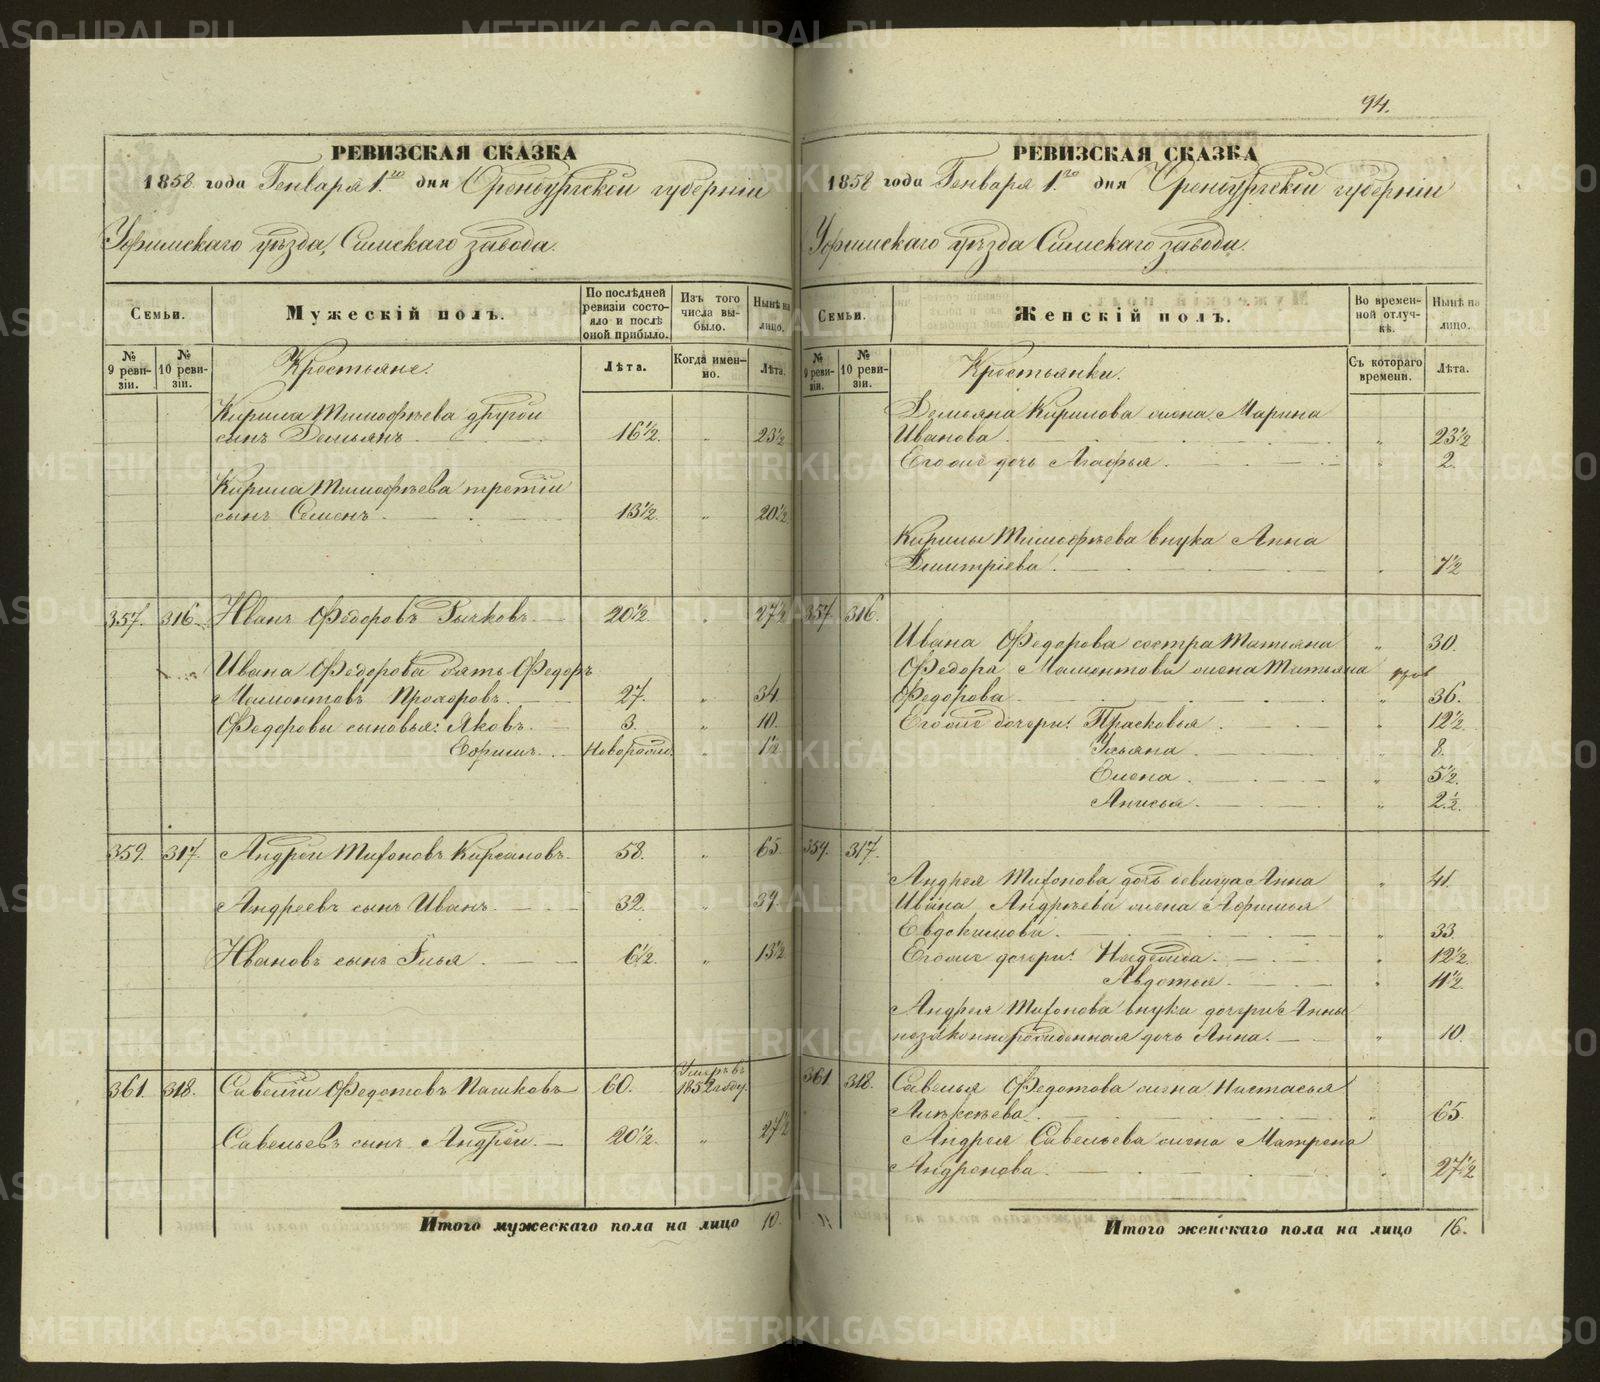 94.
РЕВИЗСКАЯ СКАЗКА
1858 года Генваря 1го дня Оренбургской губерніи
Уфимскаго уѣзда, Симскаго завода.
Семьи.
Мужескій полъ.
По послѣдней ревизіи состояло и послѣ оной прибыло.
Изъ того числа выбыло.
Нынѣ на лицо.
№ 9 ревизіи.
№ 10 ревизіи.
Крестьяне.
Лѣта.
Когда именно.
Лѣта.
Кирила Тимофѣева другой
сынъ Демьянъ. 16½. „ 23½
Кирила Тимофѣева третій
сынъ Семенъ. 13½. „ 20½
357. 316. Иванъ Федоровъ Гычковъ. 20½. „ 27½
Ивана Федорова зять Федоръ
Мамонтовъ Прохоровъ. 27. „ 34
Федоровы сыновья: Яковъ. 3. „ 10.
Ефимъ. Новорожд. „ 1½
359. 317. Андрей Тифоновъ Кирсановъ. 58. „ 65.
Андреевъ сынъ Иванъ. 32. „ 39
Ивановъ сынъ Илья. 6½. „ 13½
361. 318. Савелій Федотовъ Пашковъ 60. Умеръ въ 1852 году.
Савельевъ сынъ Андрей. 20½. „ 27½
Итого мужескаго пола на лицо 10.
РЕВИЗСКАЯ СКАЗКА
1858 года Генваря 1го дня Оренбургской губерніи
Уфимскаго уѣзда Симскаго завода.
Семьи.
Женскій полъ.
Во временной отлучкѣ.
Нынѣ на лицо.
№ 9 ревизіи.
№ 10 ревизіи.
Крестьянки.
Съ котораго времени.
Лѣта.
Демьяна Кирилова жена Марина
Иванова. „ 23½
Его же дочь Агафья. „ 2.
Кирилы Тимофѣева внука Анна
Дмитріева. „ 7½
357. 316.
Ивана Федорова сестра Татьяна „ 30.
Федора Мамонтова жена Татьяна
Федорова „ 36.
Его же дочери: Прасковья. „ 12½
Ульяна. „ 8.
Елена. „ 5½.
Анисья. „ 2½.
359. 317.
Андрея Тифонова дочь девица Анна „ 41.
Ивана Андрѣева жена Афимья
Евдокимова. „ 33.
Его же дочери: Надежда. „ 12½.
Авдотья. „ 11½.
Андрея Тифонова внука дочери Анны
незаконнорожденная дочь Анна. „ 10.
361. 318. Савелья Федотова жена Настасья
Алѣксѣева. „ 65.
Андрея Савельева жена Матрена
Андронова. „ 27½
Итого женскаго пола на лицо 16.
METRIKI.GASO-URAL.RU